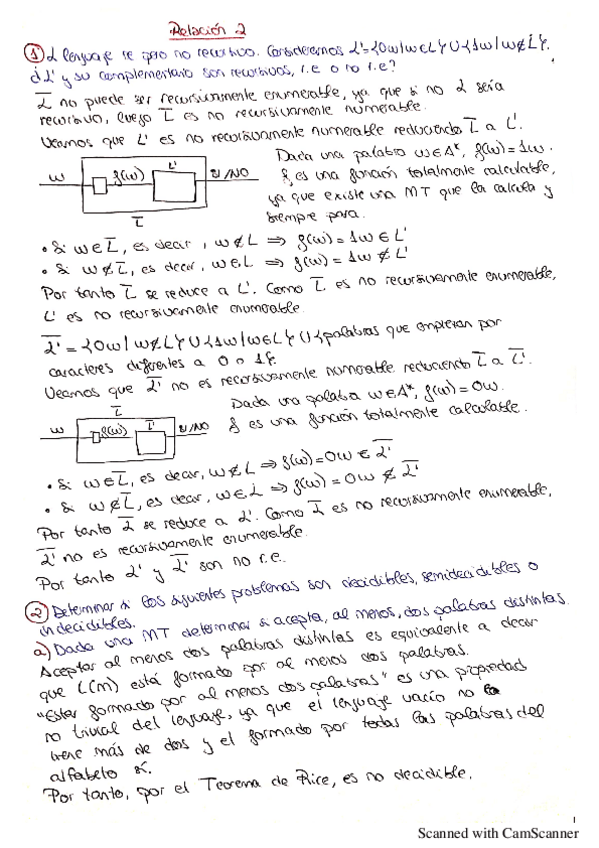 Relación 2
① L lenguaje re pero no recursivo. Consideremos L'={0w/w∈L}∪{1w/w∉L}.
¿L' y su complementario son recursivos, r.e o no r.e?
L̅ no puede ser recursivamente enumerable, ya que si no L sería
recursivo, luego L̅ es no recursivamente numerable.
Veamos que L' es no recursivamente numerable reduciendo L̅ a L'.
Dada una palabra w∈A*, f(w)=1w.
f es una función totalmente calculable,
ya que existe una MT que la calcula y
siempre para.
w f(w) L' SI/NO
L̅
• Si w∈L̅, es decir, w∉L ⇒ f(w)=1w∈L'
• Si w∉L̅, es decir, w∈L ⇒ f(w)=1w∉L'
Por tanto L̅ se reduce a L'. Como L̅ es no recursivamente enumerable,
L' es no recursivamente enumerable.
L̅'={0w/w∉L}∪{1w/w∈L}∪{palabras que empiezan por
caracteres diferentes a 0 o 1}.
Veamos que L̅' no es recursivamente numerable reduciendo L̅ a L̅'.
L̅
Dada una palabra w∈A*, f(w)=0w.
f es una función totalmente calculable.
w f(w) L̅' SI/NO
• Si w∈L̅, es decir, w∉L ⇒ f(w)=0w∈L̅'
• Si w∉L̅, es decir, w∈L ⇒ f(w)=0w∉L̅'
Por tanto L̅ se reduce a L'. Como L̅ es no recursivamente enumerable,
L̅' no es recursivamente enumerable.
Por tanto L' y L̅' son no r.e.
② Determinar si los siguientes problemas son decidibles, semidecidibles o
indecidibles.
a) Dada una MT determinar si acepta, al menos, dos palabras distintas.
Aceptar al menos dos palabras distintas es equivalente a decir
que L(M) está formado por al menos dos palabras.
"Estar formado por al menos dos palabras" es una propiedad
no trivial del lenguaje, ya que el lenguaje vacío no la
tiene más de dos y el formado por todas las palabras del
alfabeto sí.
Por tanto, por el Teorema de Rice, es no decidible.
1
Scanned with CamScanner